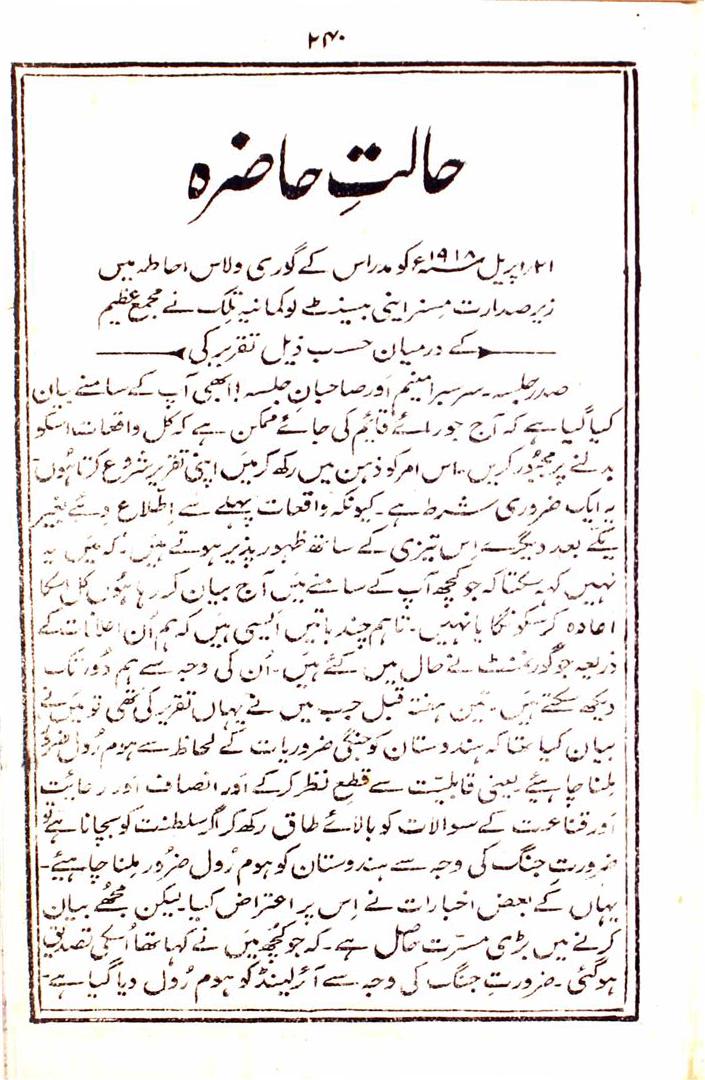 ۲۴۰
حالتِ حاضرہ
۲۱ اپریل ۱۹۱۸ء کو مدراس کے گوری ولاس احاطہ میں
زیر صدارت مسز اینی بیسنٹ لوکمانیہ تلک نے مجمع عظیم
کے درمیان حسب ذیل تقریر کی
صدر جلسہ۔ سر سبرامنیم اور صاحبان جلسہ! ابھی آپ کے سامنے بیان
کیا گیا ہے کہ آج جو رائے قائم کی جائے ممکن ہے کہ کل واقعات اسکو
بدلنے پر مجبور کریں۔ اس امر کو ذہن میں رکھ کر میں اپنی تقریر شروع کرتا ہوں۔
یہ ایک ضروری شرط ہے۔ کیونکہ واقعات پہلے سے اطلاع دئے بغیر
یکے بعد دیگرے اس تیزی کے ساتھ ظہور پذیر ہوتے ہیں۔ کہ میں یہ
نہیں کہہ سکتا کہ جو کچھ آپ کے سامنے میں آج بیان کر رہا ہوں کل اسکا
اعادہ کر سکونگا یا نہیں۔ تاہم چند باتیں ایسی ہیں کہ ہم اُن اعلانات کے
ذریعہ جو گورنمنٹ نے حال میں کئے ہیں۔ اُن کی وجہ سے ہم دور تک
دیکھ سکتے ہیں۔ تین ہفتہ قبل جب میں نے یہاں تقریر کی تھی تو میں نے
بیان کیا تھا کہ ہندوستان کو جنگی ضروریات کے لحاظ سے ہوم رول ضرور
ملنا چاہئیے یعنی قابلیت سے قطع نظر کرکے اور انصاف اور رعایت
اور قناعت کے سوالات کو بالائے طاق رکھ کر اگر سلطنت کو بچانا ہے تو
ضرورتِ جنگ کی وجہ سے ہندوستان کو ہوم رُول ضرور ملنا چاہیئے۔
یہاں کے بعض اخبارات نے اس پر اعتراض کیا۔ لیکن مجھے بیان
کرنے میں بڑی مسرت حاصل ہے۔ کہ جو کچھ میں نے کہا تھا اُسکی تصدیق
ہوگئی۔ ضرورتِ جنگ کی وجہ سے آئرلینڈ کو ہوم رُول دیا گیا ہے۔